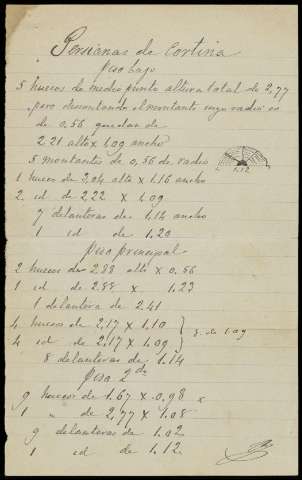 Persianas de Cortina
piso bajo
5 huecos de medio punto altura total de 2,77
pero descontando el montante cuyo radio es
de 0,56 quedan de
2,21 alto x 1,09 ancho
5 montantes de 0,56 de radio
1,12
1 hueco de 3,04 alto x 1,16 ancho
2 id de 2,22 x 1,09
7 delanteras de 1,14 ancho
1 id de 1,20
Piso principal
2 huecos de 2,88 alto x 0,56
1 id de 2,88 x 1,23
1 delantera de 2,41
4 huecos de 2,17 x 1,10
4 id de 2,17 x 1,09
8 de 1,09
8 delanteras de 1,14
Piso 2do
9 huecos de 1,67 x 0,98 x
1 " de 2,77 x 1,08
9 delanteras de 1,02
1 id de 1,12.